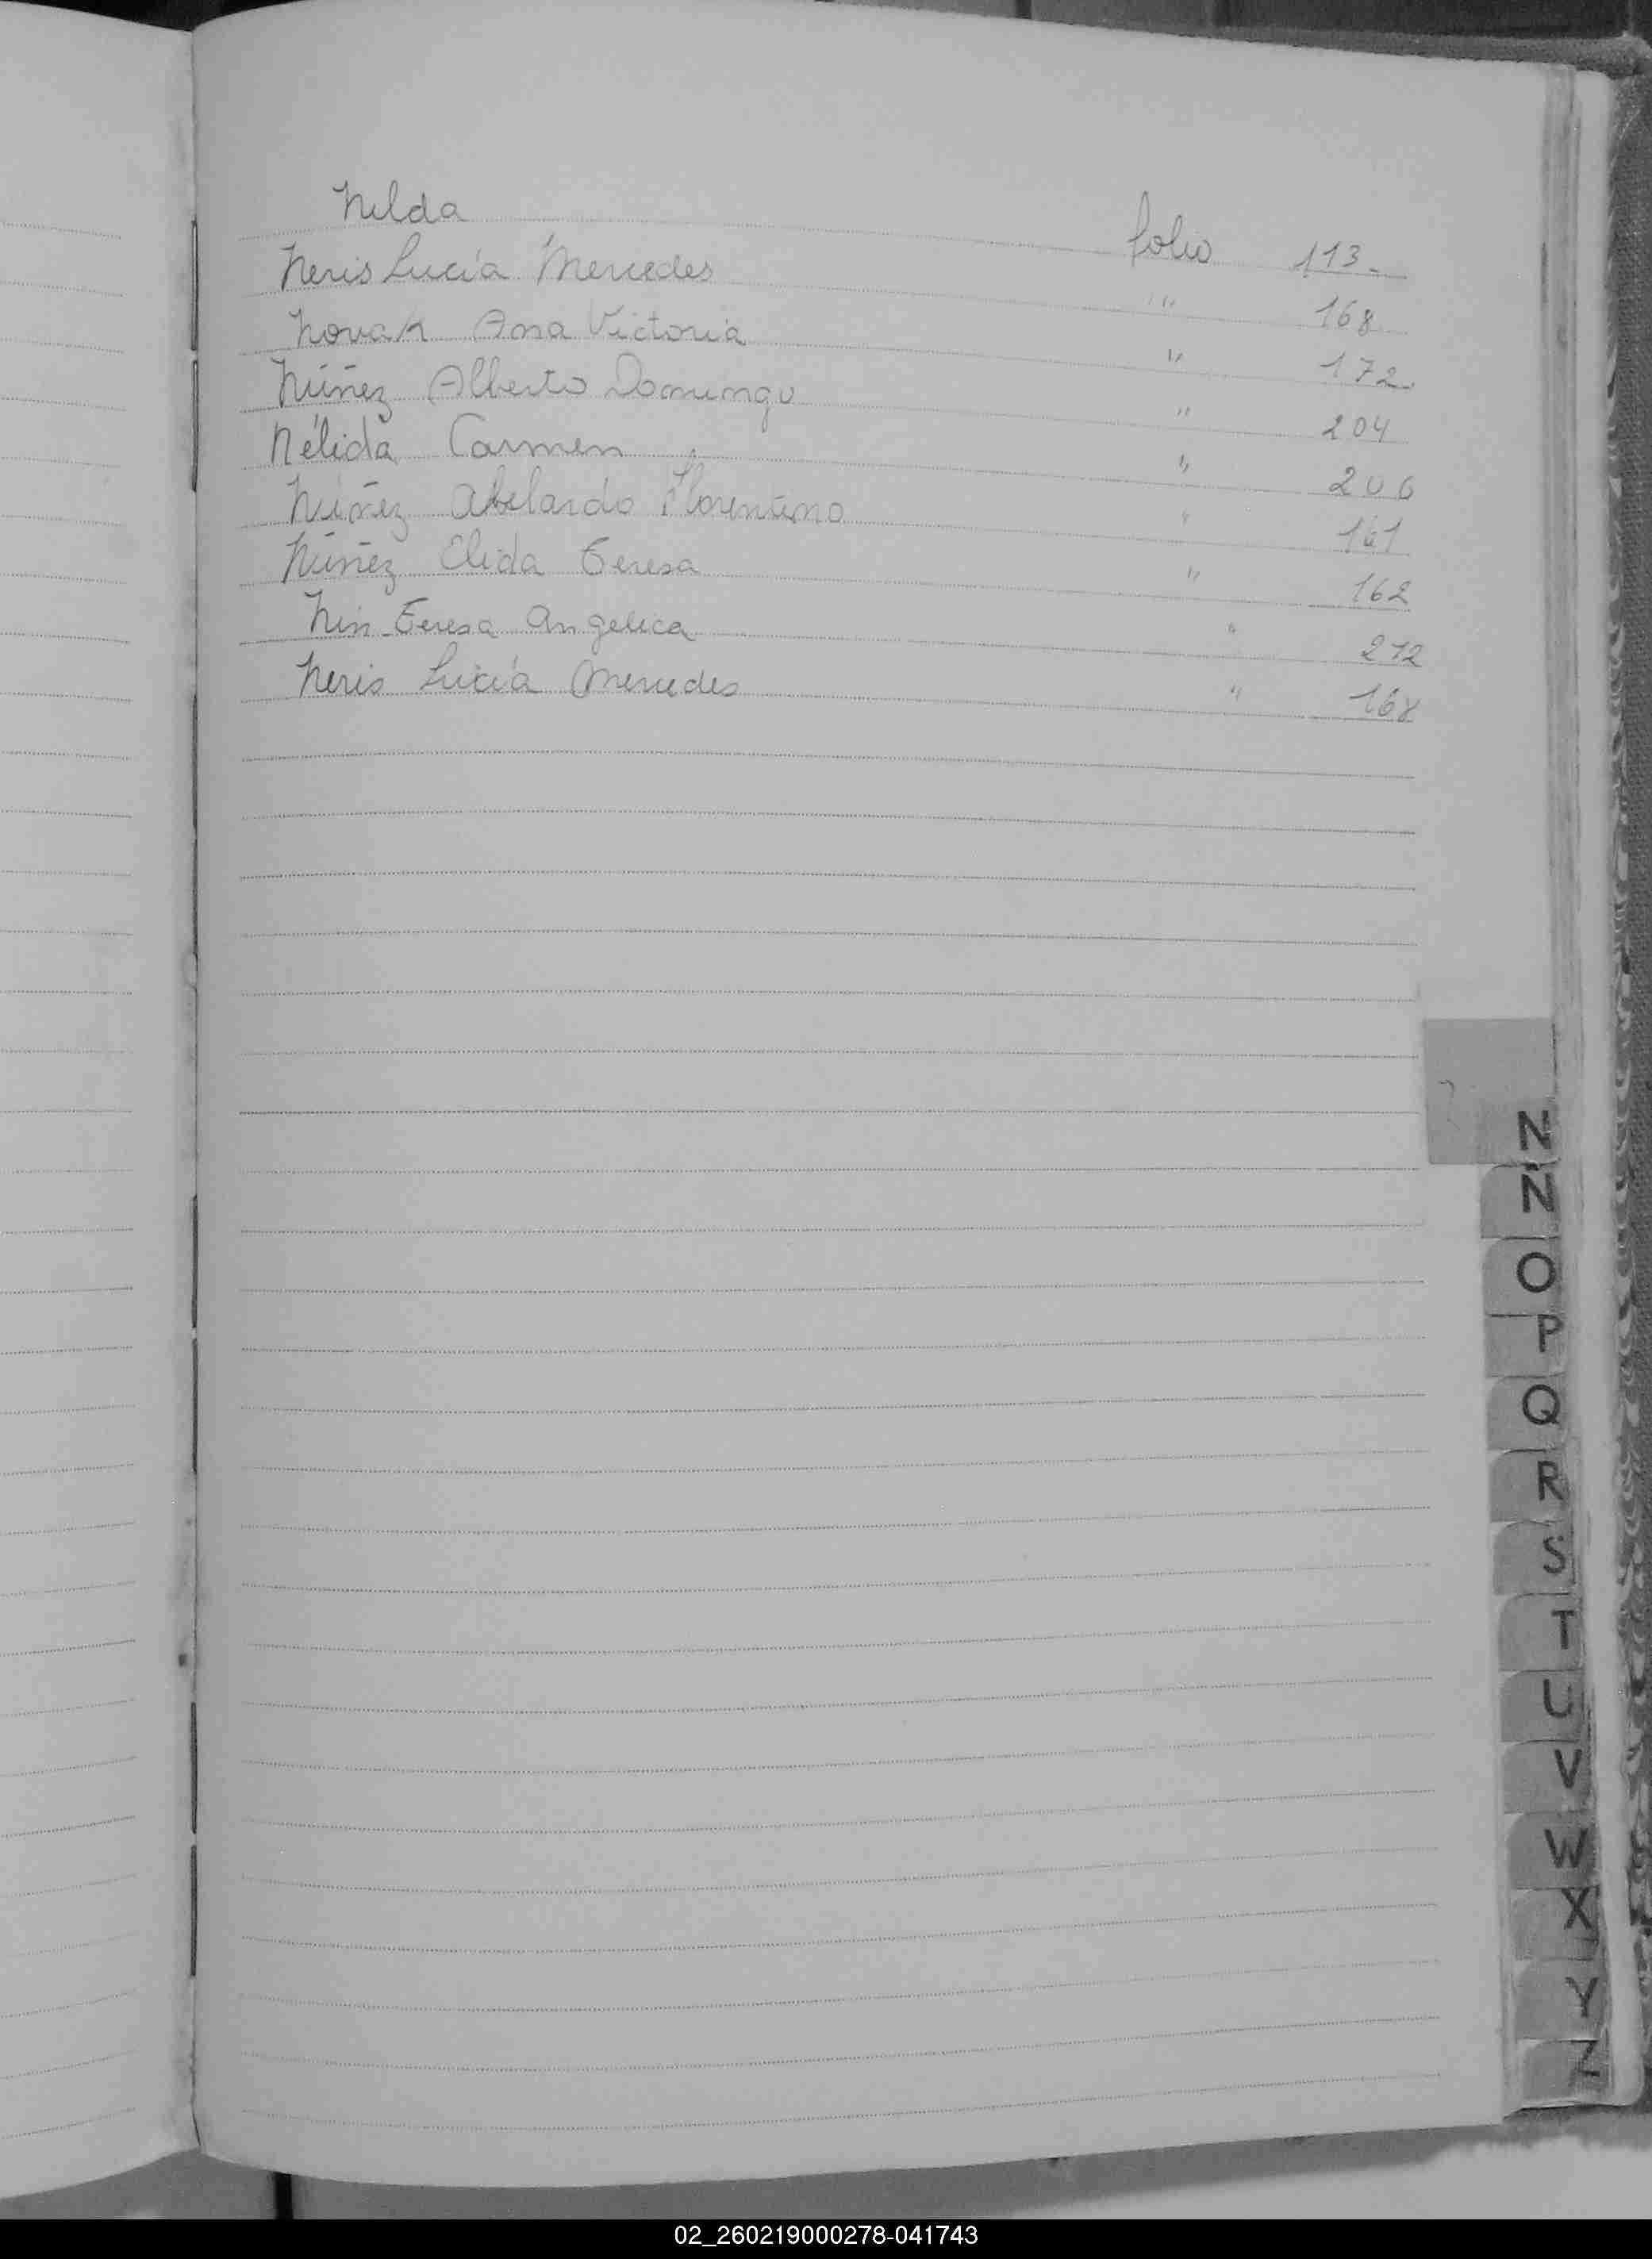 Nilda folio 113.
Neris Lucía Mercedes " 168
Novak Ana Victoria " 172.
Núñez Alberto Domingo " 204
Nélida Carmen " 206
Núñez Abelardo Florentino " 161
Núñez Elida Teresa " 162
Nin Teresa Angelica " 212
Neris Lucía Mercedes " 168
N
Ñ
O
P
Q
R
S
T
U
V
W
X
Y
Z
02_260219000278-041743